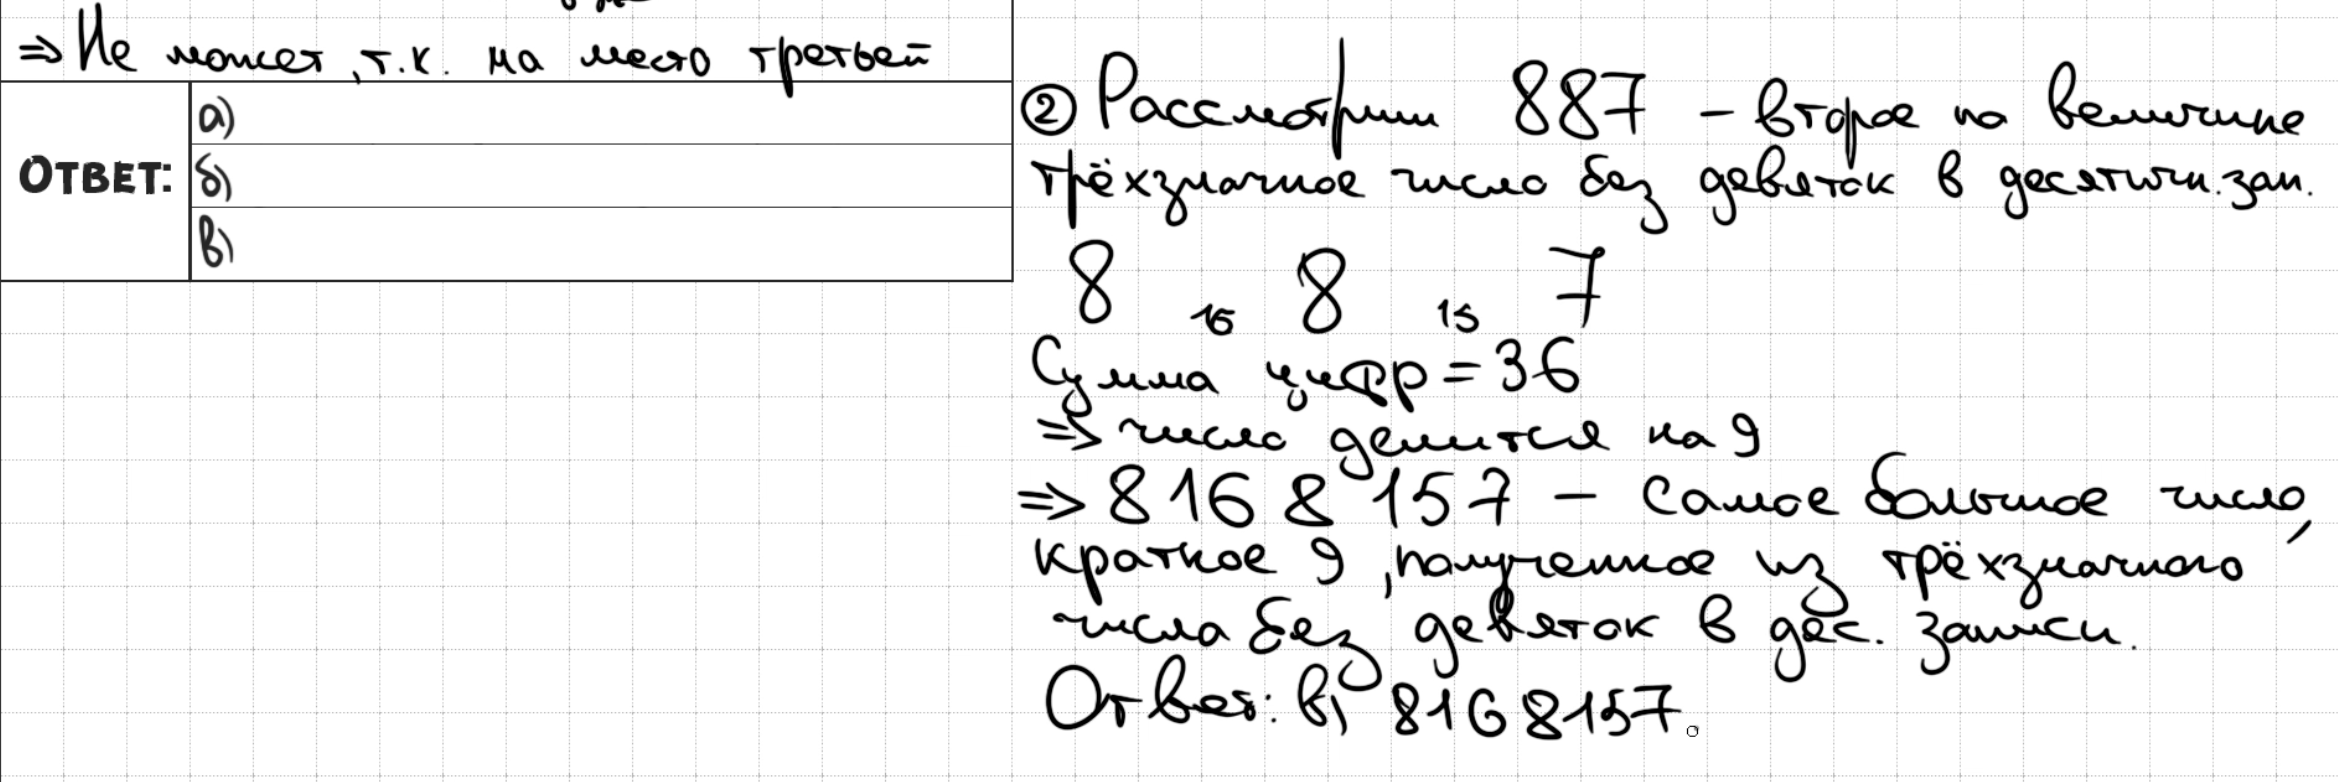 ⇒ Не может, т.к. на место третьей
ОТВЕТ:
а)
б)
в)
② Рассмотрим 887 – второе по величине
трёхзначное число без девяток в десятичн. зап.
8 16 8 15 7
Сумма цифр = 36
⇒ число делится на 9
⇒ 816 8 157 – самое большое число,
кратное 9, полученное из трёхзначного
числа без девяток в дес. записи.
Ответ: в) 8168157.